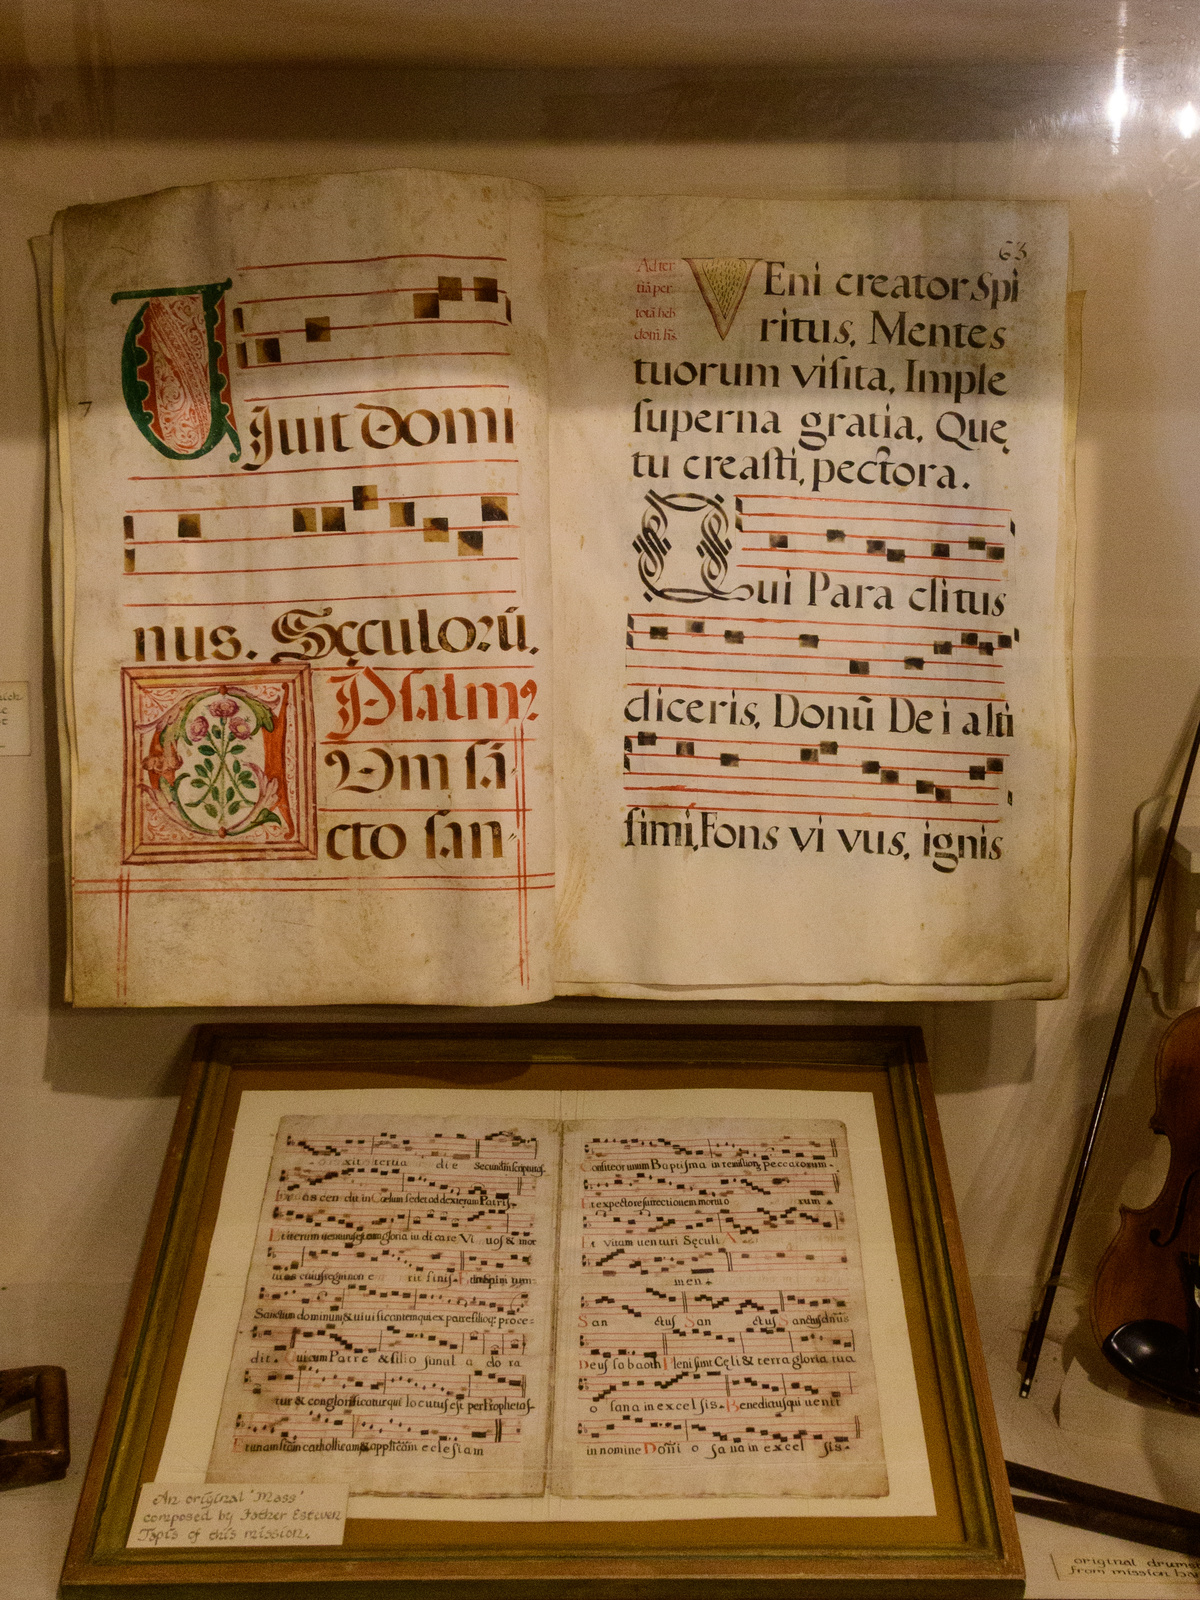 7
Uiuit Domi
nus. Sęculorũ.
Psalm9
Dm sã
cto san"
63
Ad ter
tiã per
totã heb
dom̃ hs̃.
VEni creator Spi
ritus, Mentes
tuorum viſita, Imple
ſuperna gratia, Quę
tu creaſti, pectora.
Qui Para clitus
diceris, Donũ De i alti
ſimi, Fons vi vus, ignis
xit tertia die Secundũ ſcripturas.
as cen dit in Cœlum ſedet ad dexteram Patris.
Et iterum venturus eſt cum gloria iu di care Vi uos & mor
tuos cuius regni non e rit finis. Et in Spiri tum
Sanctum dominum & uiuificantem qui ex patre filioqȝ proce=
dit. Qui cum Patre & filio ſimul a do ra
tur & conglorificatur qui locutus eſt per Prophetas.
Et unam ſanctam catholicam & appoſtolicam ecleſiam
Confiteor unum Baptiſma in remiſſionẽ peccatorum.
Et expecto reſurrectionem mortuo rum
Et vitam uenturi Sęculi A
men.
San ctuſ San ctuſ Sanctuſ dñus
Deuſ ſabaoth Pleni ſunt Cęli & terra gloria tua
o ſana in excel ſis. Benedictuſ qui uenit
in nomine Domi o ſa na in excel ſis.
An original 'Mass'
composed by Father Esteven
Tapis of this mission.
original drums
from mission